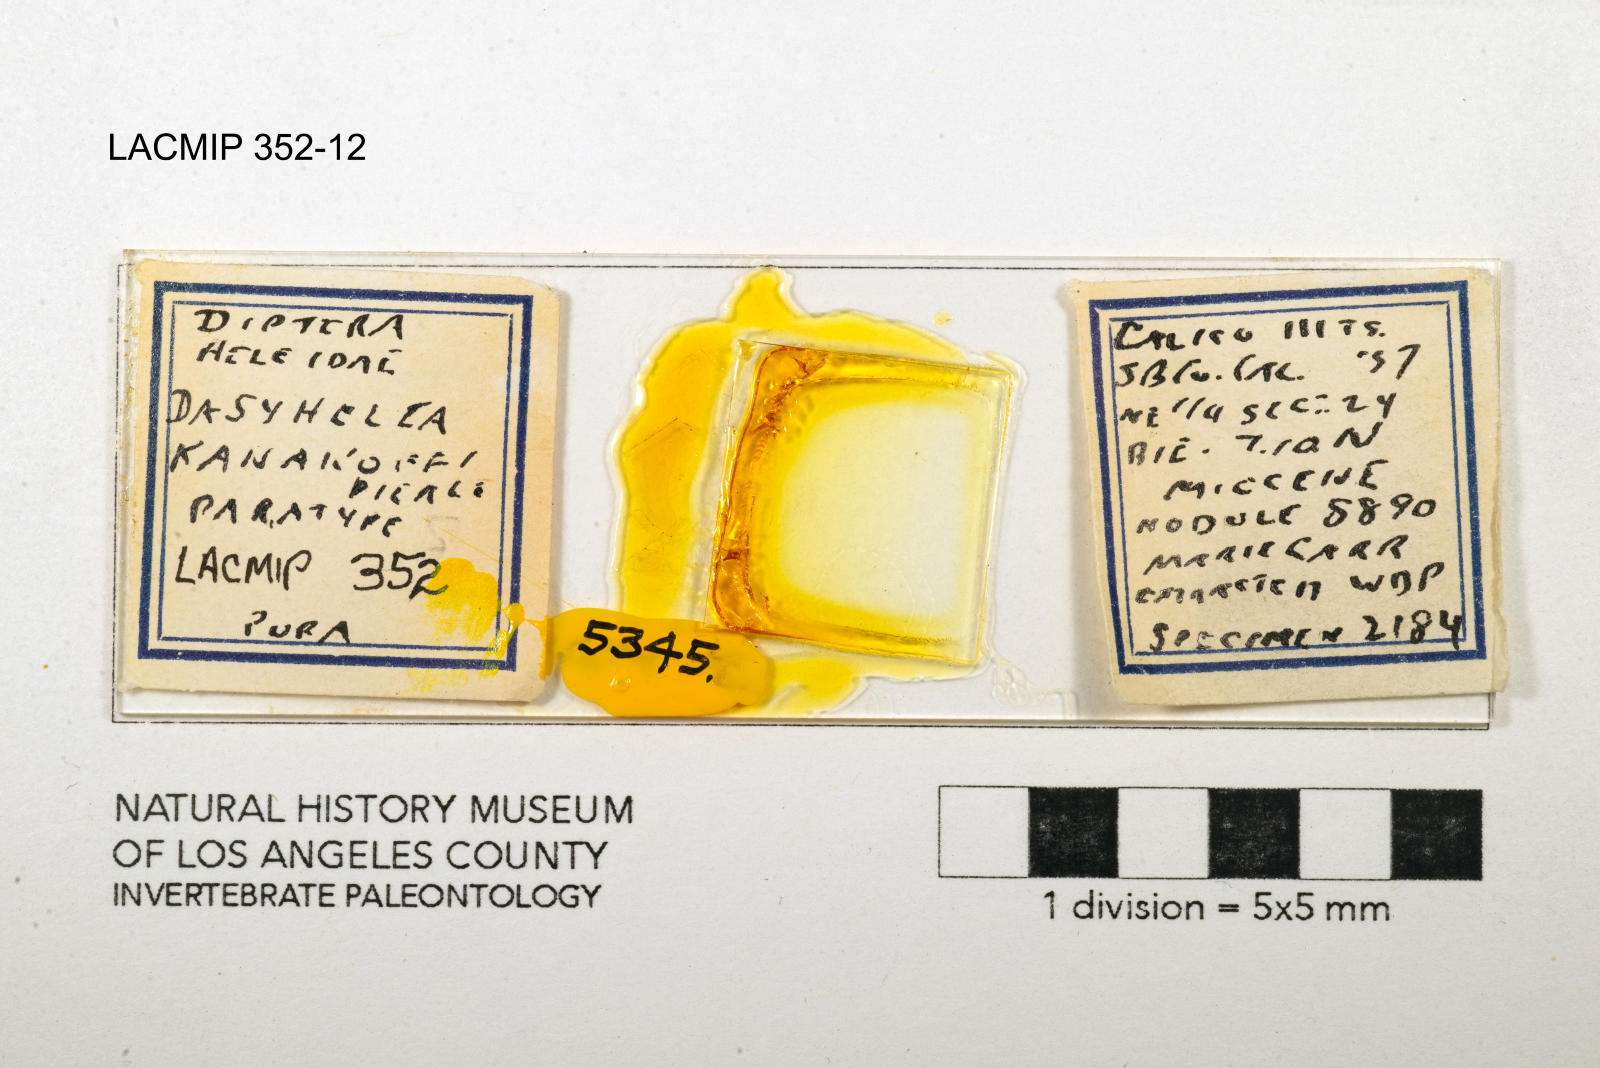 LACMIP 352-12
DIPTERA
HELEIDAE
DASYHELEA
KANAKOFFI
PIERCE
PARATYPE
LACMIP 352
PUPA
5345.
CALICO MTS.
SB CO. CAL. '57
NE 1/4 SEC. 24
R1E. T.10N
MIOCENE
NODULE 8890
MARIE CARR
WDP
SPECIMEN 2184
NATURAL HISTORY MUSEUM
OF LOS ANGELES COUNTY
INVERTEBRATE PALEONTOLOGY
1 division = 5x5 mm